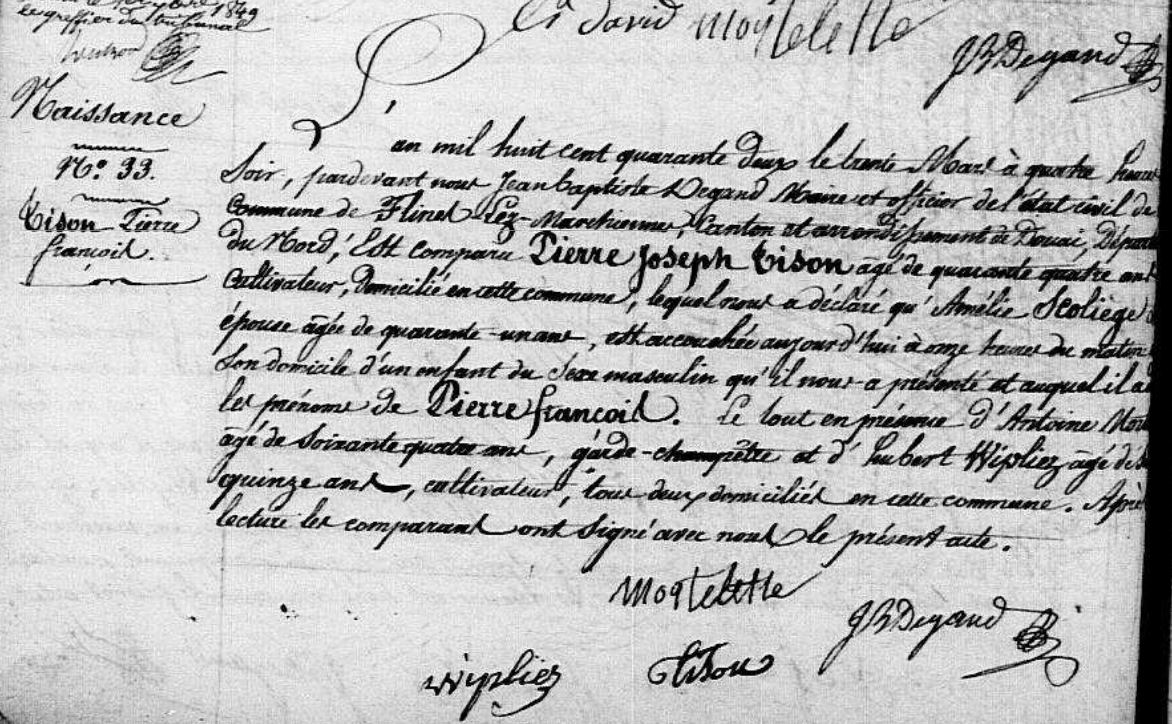 1849
le greffier du tribunal
David Mortelette
JBDegand
Naissance
N.º 33.
Tison Pierre
françois.
L'an mil huit cent quarante deux le trente Mars à quatre heures
Soir, pardevant nous Jean baptiste Degand Maire et officier de l'état civil de
Commune de Flines-Lez-Marchiennes, Canton et arrondissement de Douai, Dépar
du Nord, Est comparu Pierre Joseph Tison âgé de quarante quatre ans
Cultivateur, Domicilié en cette commune, lequel nous a déclaré qu'Amélie Scoliège
épouse âgée de quarante-un ans, est accouchée aujourd'hui à onze heures du matin
Son domicile d'un enfant du Sexe masculin qu'il nous a présenté et auquel il a
les prénoms de Pierre françois. Le tout en présence d'Antoine
âgé de Soixante quatre ans, garde-champêtre et d'hubert Wipliez âgé de
quinze ans, cultivateur, tous deux domiciliés en cette commune. Après
lecture les comparans ont Signé avec nous le présent acte.
Mortelette
JBDegand
Wipliez Tison